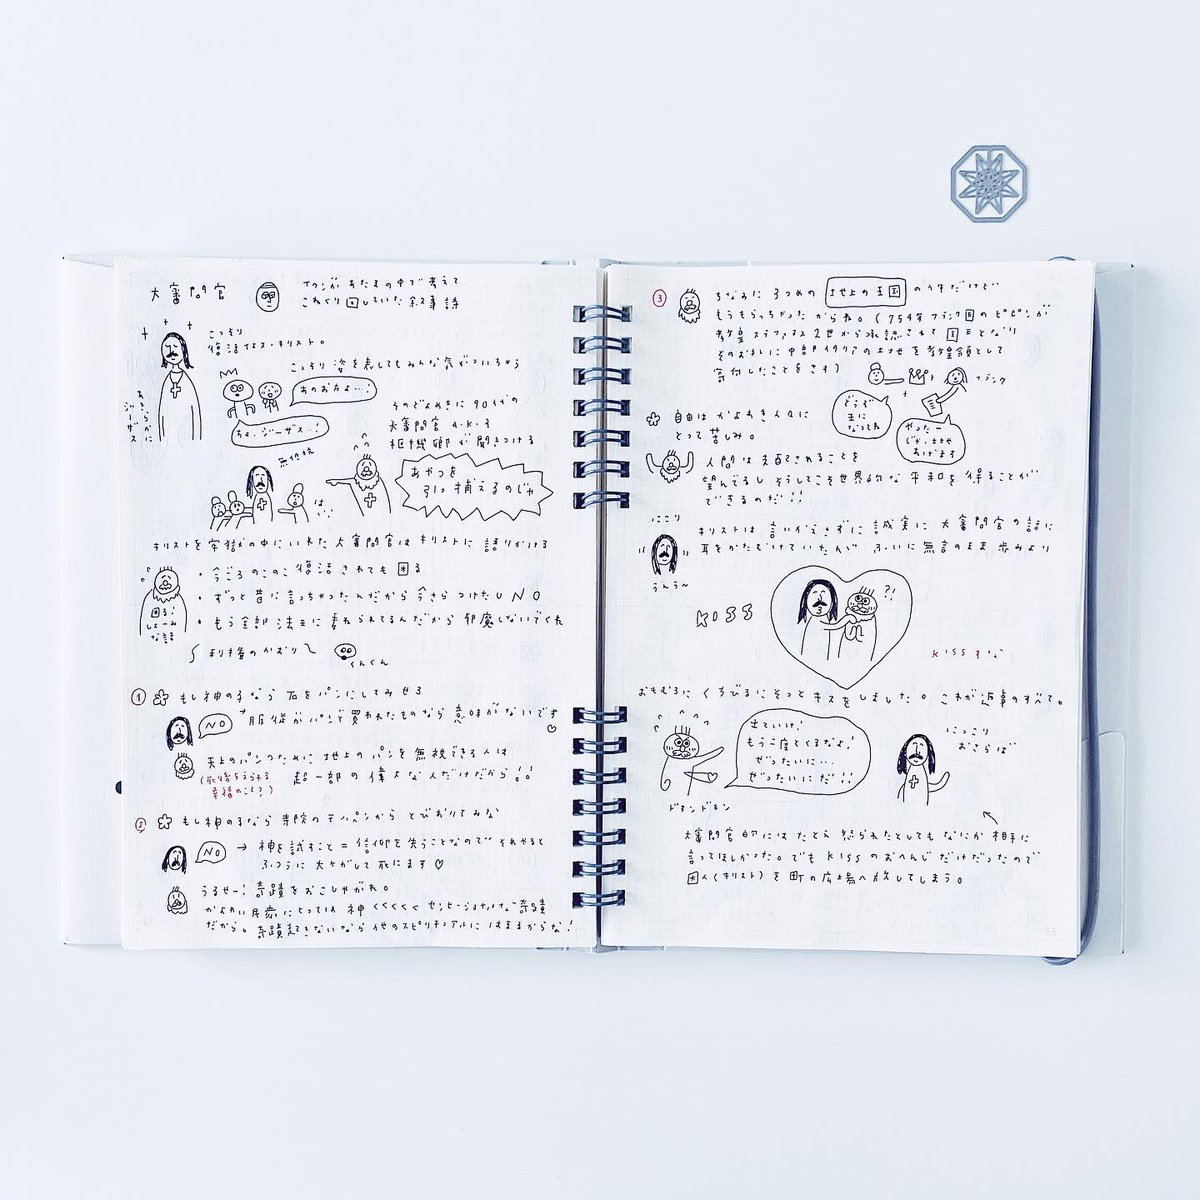 大審問官
イワンがあたまの中で考えて
こねくり回していた叙事詩
こっそり
復活イエス・キリスト。
あきらかに
ジーザス
こっそり 姿を表してもみんな気がついちゃう
あのおかたよ…!
ちょ、ジーザス…!
そのどよめきに90代の
大審問官 a.k.a
枢機卿が聞きつける
無抵抗
あやつを
引っ捕えるのじゃ
は、
キリストを牢獄の中にいれた大審問官はキリストに語りかける
・今ごろのこのこ復活されても困る
・ずっと昔に言っちゃったんだから今さらつけたしNO
・もう全部法王に委ねられてるんだから邪魔しないでくれ
困る!
利権のかおり
くんくん
① もし神の子なら石をパンにしてみせろ
NO
服従がパンで買われたものなら意味がないです
天上のパンのために地上のパンを無視できる人は
(死後与えられる
幸福のこと?)
超一部の偉大な人だけだから!!
② もし神の子なら寺院のテッペンからとびおりてみな
NO
→ 神を試すこと=信仰を失うことなのでそれやると
ふつうに大ケガして死にます♡
うるせー!奇蹟をおこしやがれ。
かよわい民衆にとっては神くくくくくセンセーショナルな奇蹟
だから。奇蹟起きないなら他のスピリチュアルにはまるからな!
57
③ ちなみに3つめの地上の王国の件だけど
もうもらっちゃったからね。(754年フランク国のピピンが
教皇ステファヌス2世から承認されて国王となり
そのお礼に中部イタリアの土地を教皇領として
寄付したことをさす)
フランク
どうぞ
王に
なってね
やったー
じゃ、土地
あげます
自由はかよわき人々に
とって苦しみ。
人間は支配されることを
望んでるしそうしてこそ世界的な平和を得ることが
できるのだ!!
にこり
うんうん
キリストは言いかえさずに誠実に大審問官の話に
耳をかたむけていたが ふいに無言のまま歩みより
KISS
?!
KISSすな
おもむろにくちびるにそっとキスをしました。これが返事のすべて。
出ていけ!
もう二度とくるなよ!
ぜったいに…
ぜったいにだ!!
ドキンドキン
にっこり
おさらば
大審問官的にはたとえ怒られたとしてもなにか相手に
言ってほしかった。でもKISSのおへんじだけだったので
囚人(キリスト)を町の広場へ放してしまう。
58